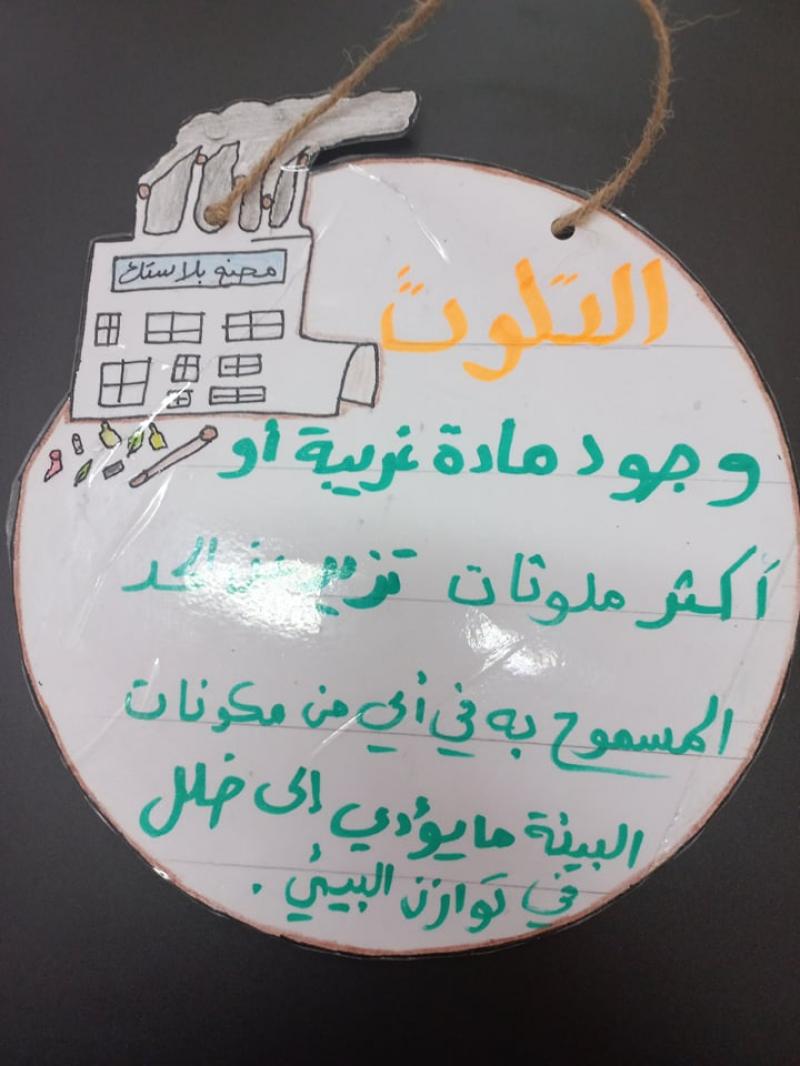 مصنع بلاستك
التلوث
وجود مادة غريبة أو
أكثر ملوثات تزيد عن الحد
المسموح به في أي من مكونات
البيئة مايؤدي الى خلل
في توازن البيئي .